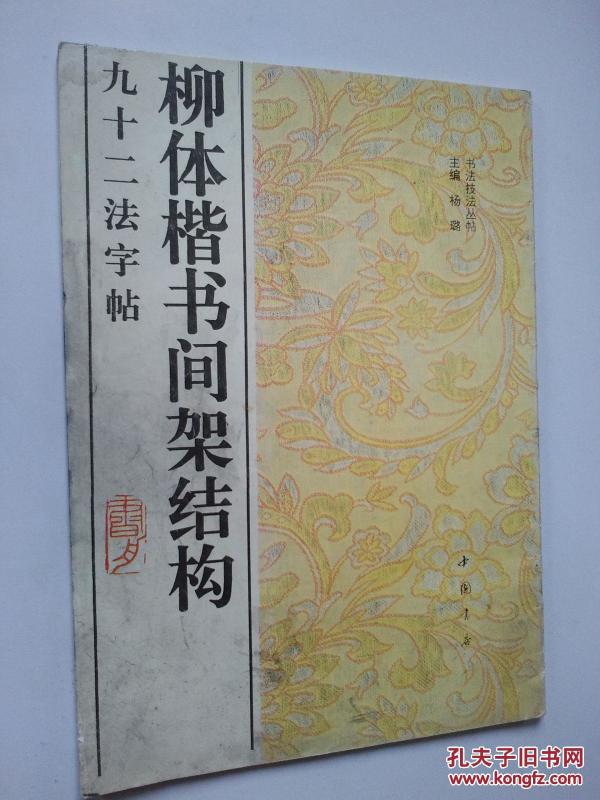 书法技法丛帖
主编 杨璐
柳体楷书间架结构
九十二法字帖
中国书店
孔夫子旧书网
www.kongfz.com